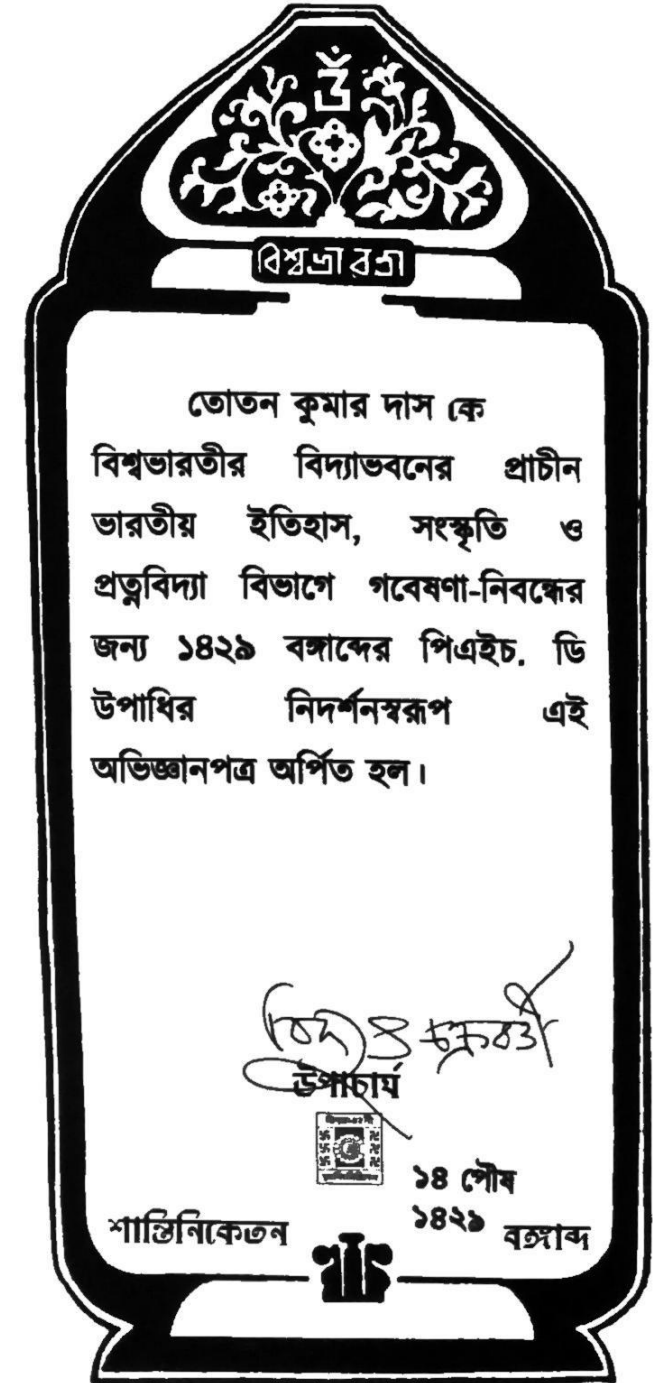 ওঁ
বিশ্বভারতী
তোতন কুমার দাস কে
বিশ্বভারতীর বিদ্যাভবনের প্রাচীন
ভারতীয় ইতিহাস, সংস্কৃতি ও
প্রত্নবিদ্যা বিভাগে গবেষণা-নিবন্ধের
জন্য ১৪২৯ বঙ্গাব্দের পিএইচ. ডি
উপাধির নিদর্শনস্বরূপ এই
অভিজ্ঞানপত্র অর্পিত হল।
চক্রবর্তী
উপাচার্য
১৪ পৌষ
শান্তিনিকেতন ১৪২৯ বঙ্গাব্দ